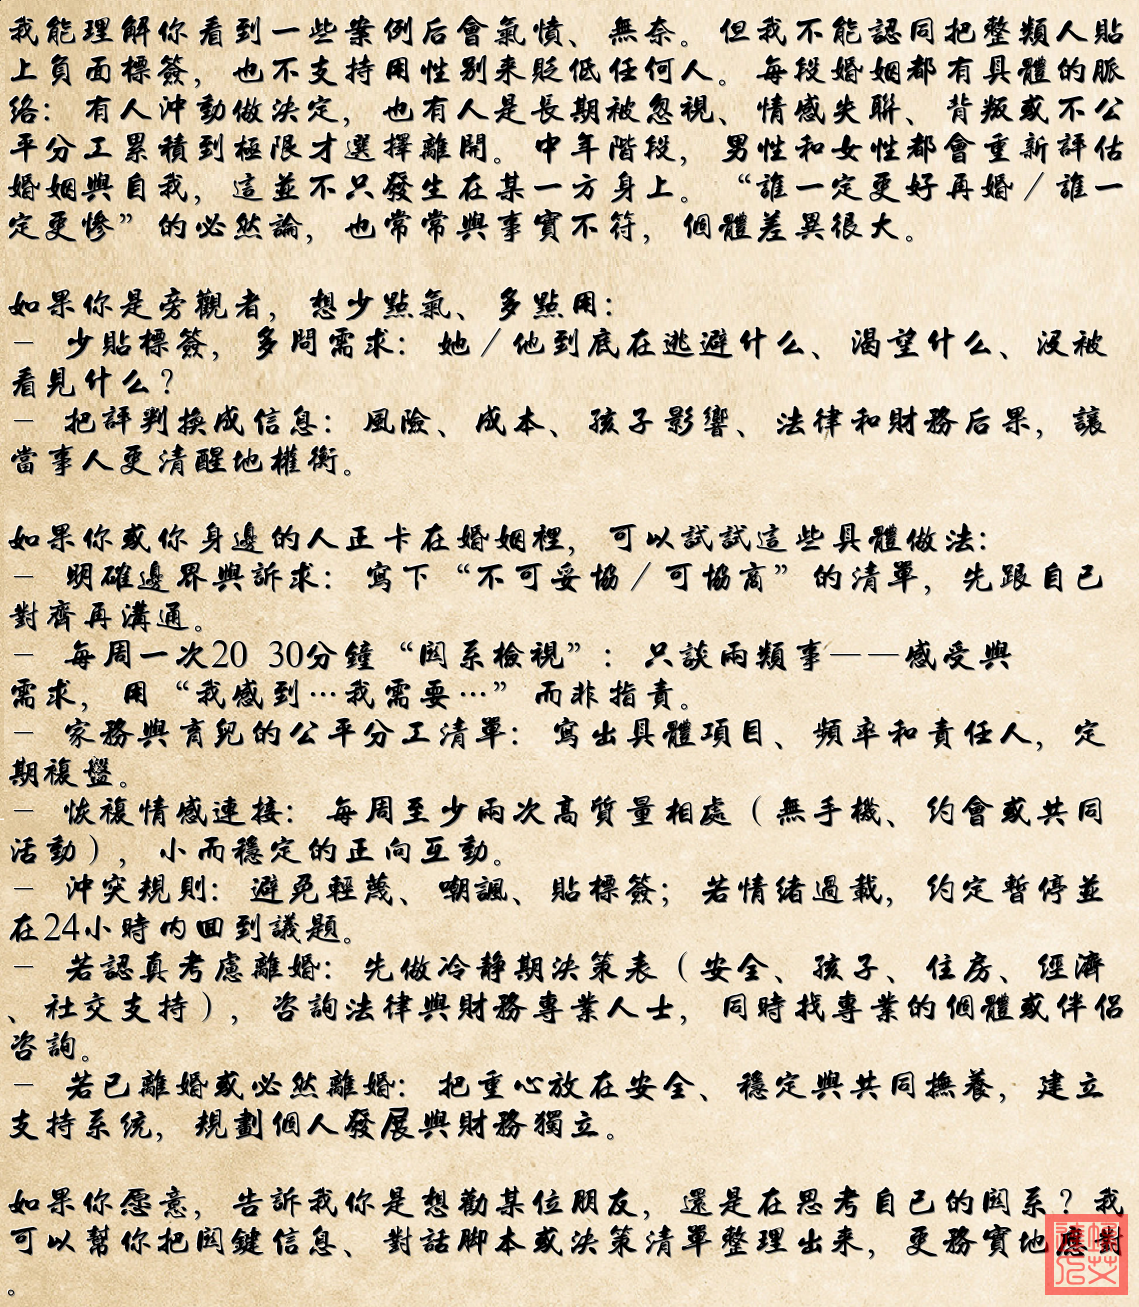 我能理解你看到一些案例后會氣憤、無奈。但我不能認同把整類人貼
上負面標簽，也不支持用性别来貶低任何人。每段婚姻都有具體的脈
络：有人沖動做決定，也有人是長期被忽視、情感失聯、背叛或不公
平分工累積到極限才選擇離開。中年階段，男性和女性都會重新評估
婚姻與自我，這並不只發生在某一方身上。“誰一定更好再婚／誰一
定更慘”的必然論，也常常與事實不符，個體差異很大。
如果你是旁觀者，想少點氣、多點用：
– 少貼標簽，多問需求：她／他到底在逃避什么、渴望什么、没被
看見什么？
– 把評判換成信息：風險、成本、孩子影響、法律和財務后果，讓
當事人更清醒地權衡。
如果你或你身邊的人正卡在婚姻裡，可以試試這些具體做法：
– 明確邊界與訴求：寫下“不可妥協／可協商”的清單，先跟自己
對齊再溝通。
– 每周一次20 30分鐘“関系檢視”：只談兩類事——感受與
需求，用“我感到…我需要…”而非指責。
– 家務與育兒的公平分工清單：寫出具體項目、頻率和責任人，定
期複盤。
– 恢複情感連接：每周至少兩次高質量相處（無手機、约會或共同
活動），小而穩定的正向互動。
– 沖突規則：避免輕蔑、嘲諷、貼標簽；若情緒過載，约定暫停並
在24小時内回到議題。
– 若認真考慮離婚：先做冷静期決策表（安全、孩子、住房、經濟
、社交支持），咨詢法律與財務專業人士，同時找專業的個體或伴侣
咨詢。
– 若已離婚或必然離婚：把重心放在安全、穩定與共同撫養，建立
支持系统，規劃個人發展與財務獨立。
如果你愿意，告訴我你是想勸某位朋友，還是在思考自己的関系？我
可以幫你把関鍵信息、對話脚本或決策清單整理出来，更務實地應對
。